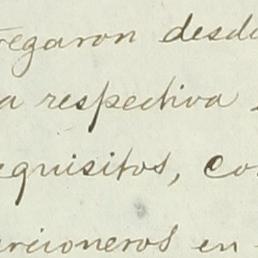 regaron desde
a respectiva
equisitos, co
arcioneros en